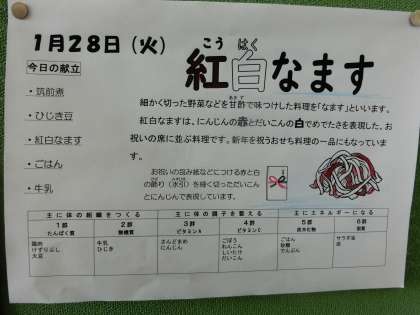 1月28日（火）
今日の献立
・筑前煮
・ひじき豆
・紅白なます
・ごはん
・牛乳
こう はく
紅白なます
細かく切った野菜などを甘酢で味つけした料理を「なます」といいます。
紅白なますは、にんじんの赤とだいこんの白でめでたさを表現した、お
祝いの席に並ぶ料理です。新年を祝うおせち料理の一品にもなっていま
す。
お祝いの包み紙などにつける赤と白
の飾り（水引）を細く切っただいこん
とにんじんで表現しています。
主に体の組織をつくる 主に体の調子を整える 主にエネルギーになる
1群 2群 3群 4群 5群 6群
たんぱく質 無機質 ビタミンA ビタミンC 炭水化物 脂質
鶏肉 牛乳 さんどまめ ごぼう ごはん サラダ油
けずりぶし ひじき にんじん れんこん 砂糖
大豆 しいたけ でんぷん
だいこん